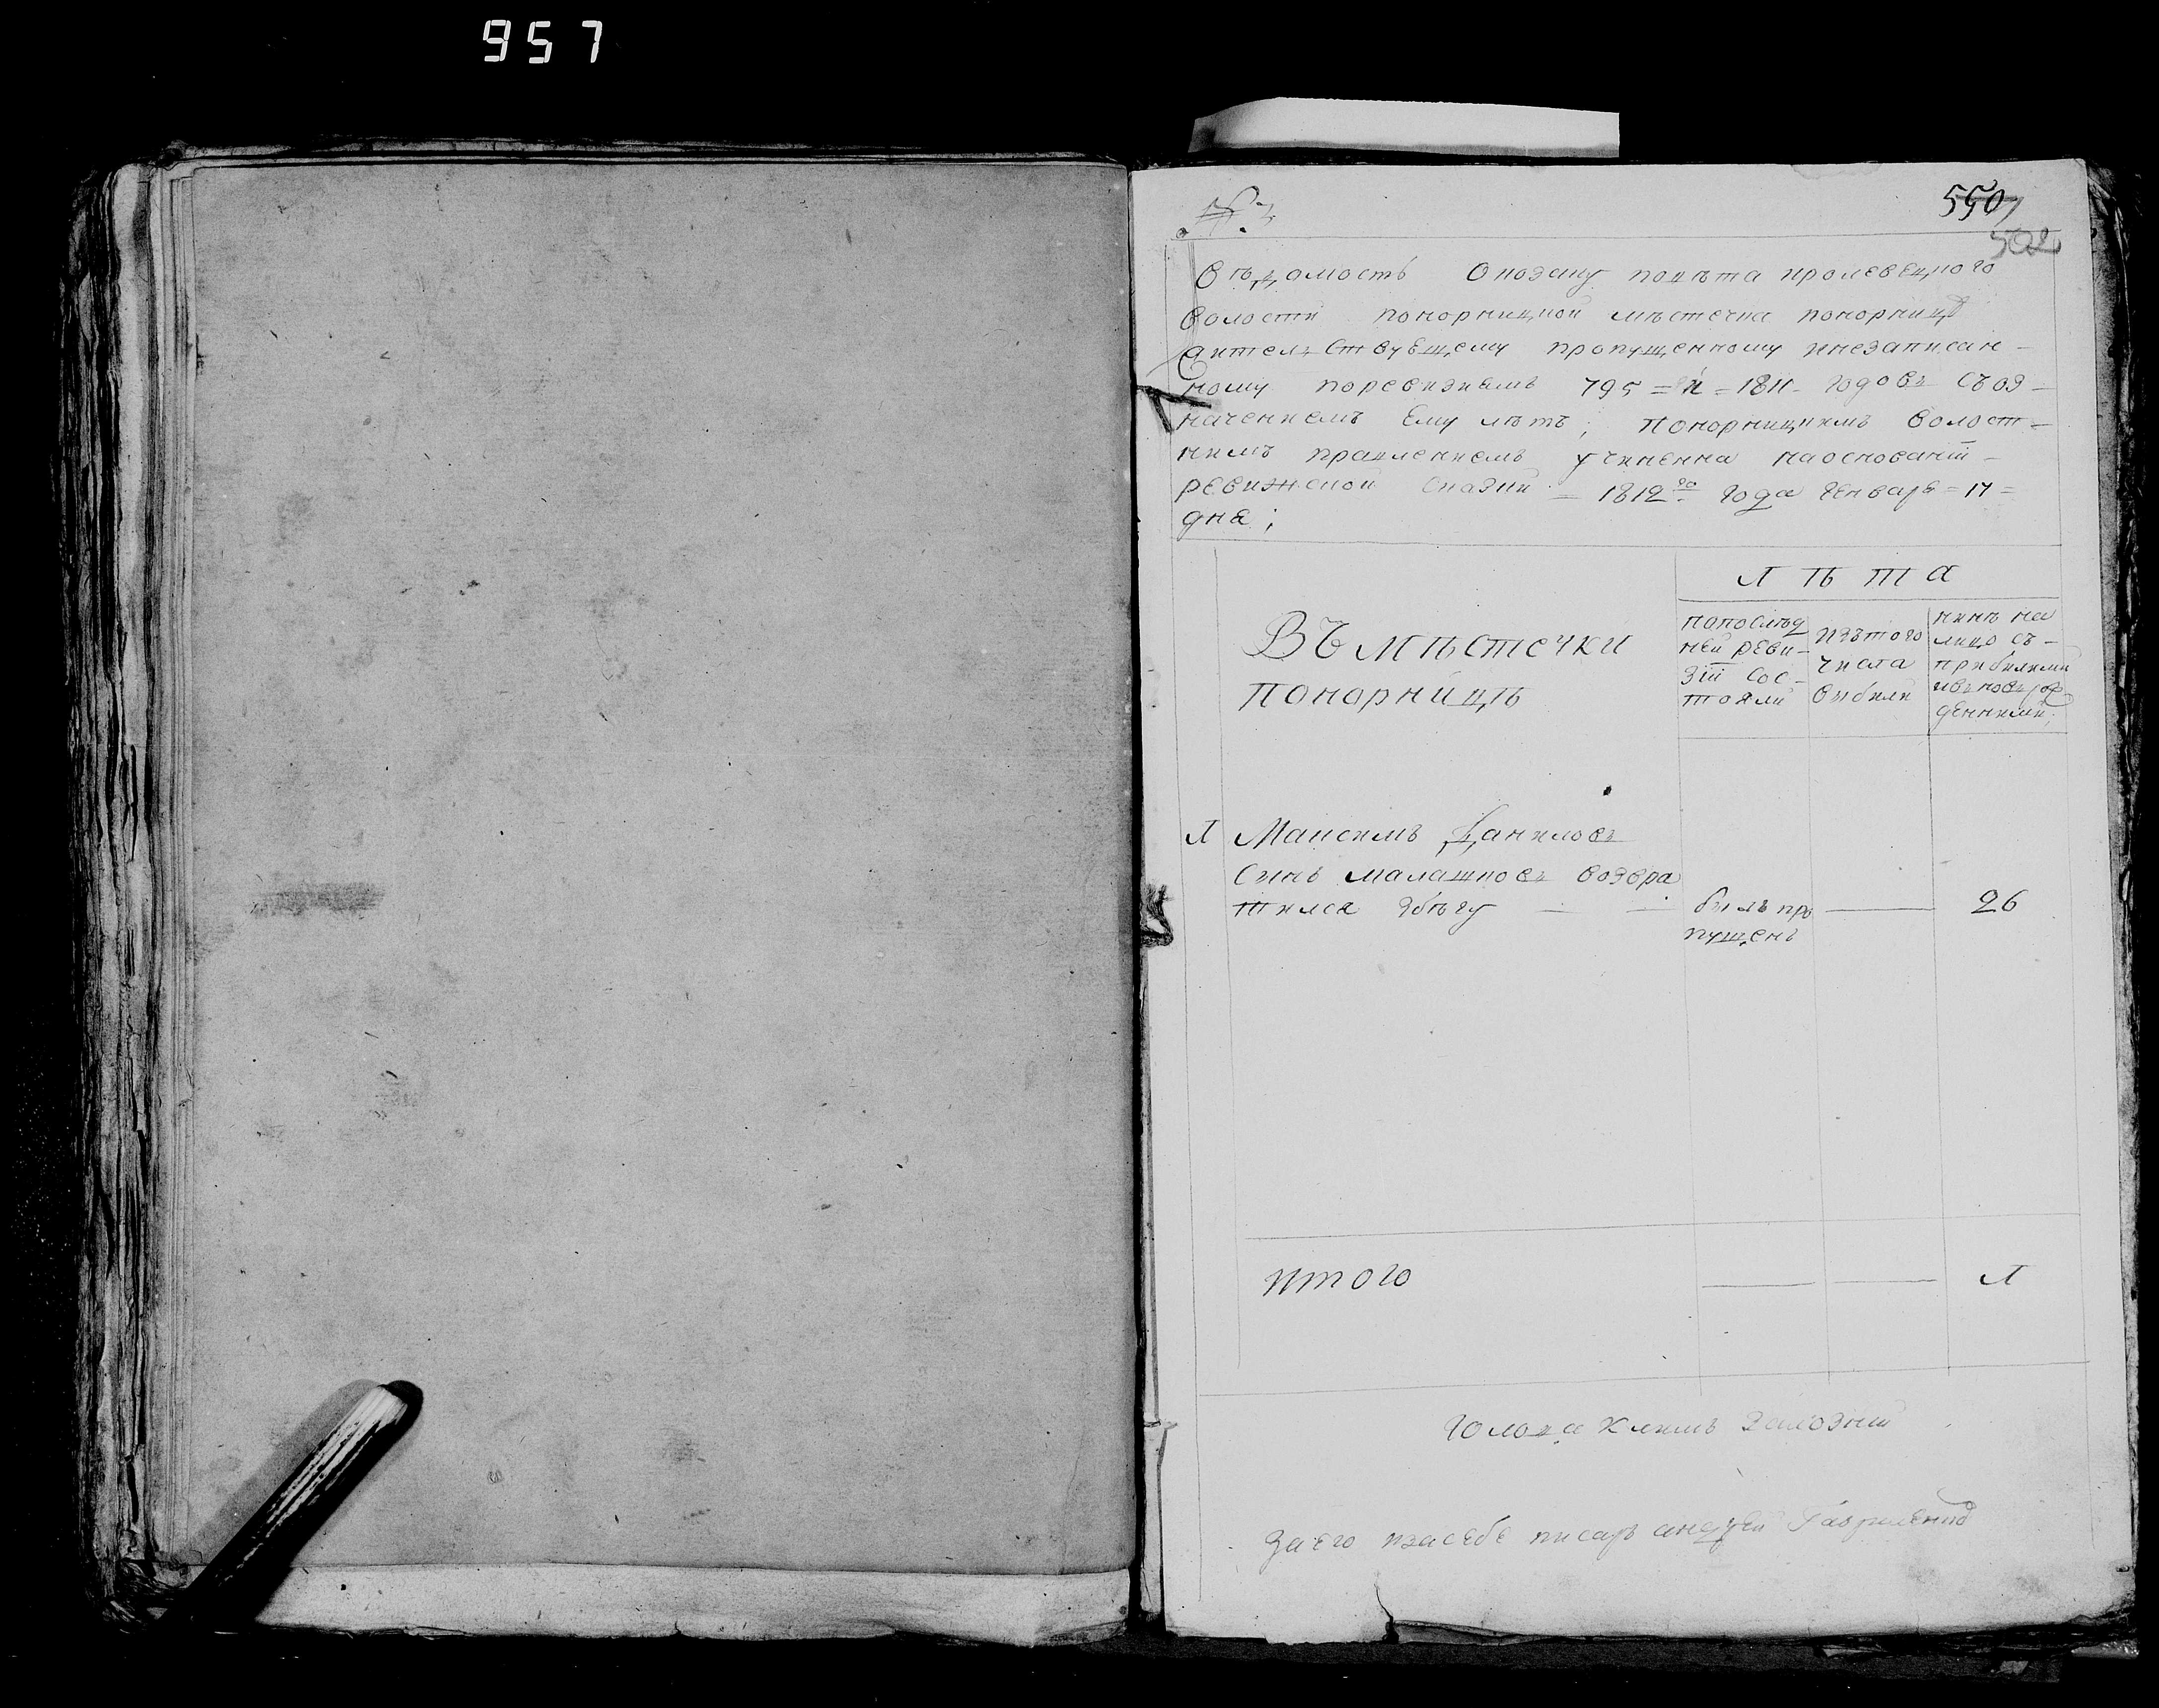 957
550
502
Вѣдомость Оповѣту кролевецкого
волости понорницкой мѣстечка понорницѣ
жителствующему пропущенному инезаписан-
ному поревизиямъ 795 = и = 1811 - годовъ Съоз-
начениемъ Ему лѣтъ; Понорницкимъ волост-
нимъ правлениемъ учиненна наоснованіи
ревизской Сказки = 1812го года Генваря = 17 =
дня;
Л ѣ т а
Въ мѣстечки
понорницѣ
попослѣд
ней реви-
зіи Сос-
тояли
изътого
числа
выбили
нинѣ на
лицо съ-
прибилими
ивъновърож
денними;
1 Максимъ Даниловъ
Синъ малашковъ возвра
тился збѣгу — — былъ про — 26
пущенъ
итого — — 1
Голова Климъ
Заего изасебе писарь андрей Гавриленко